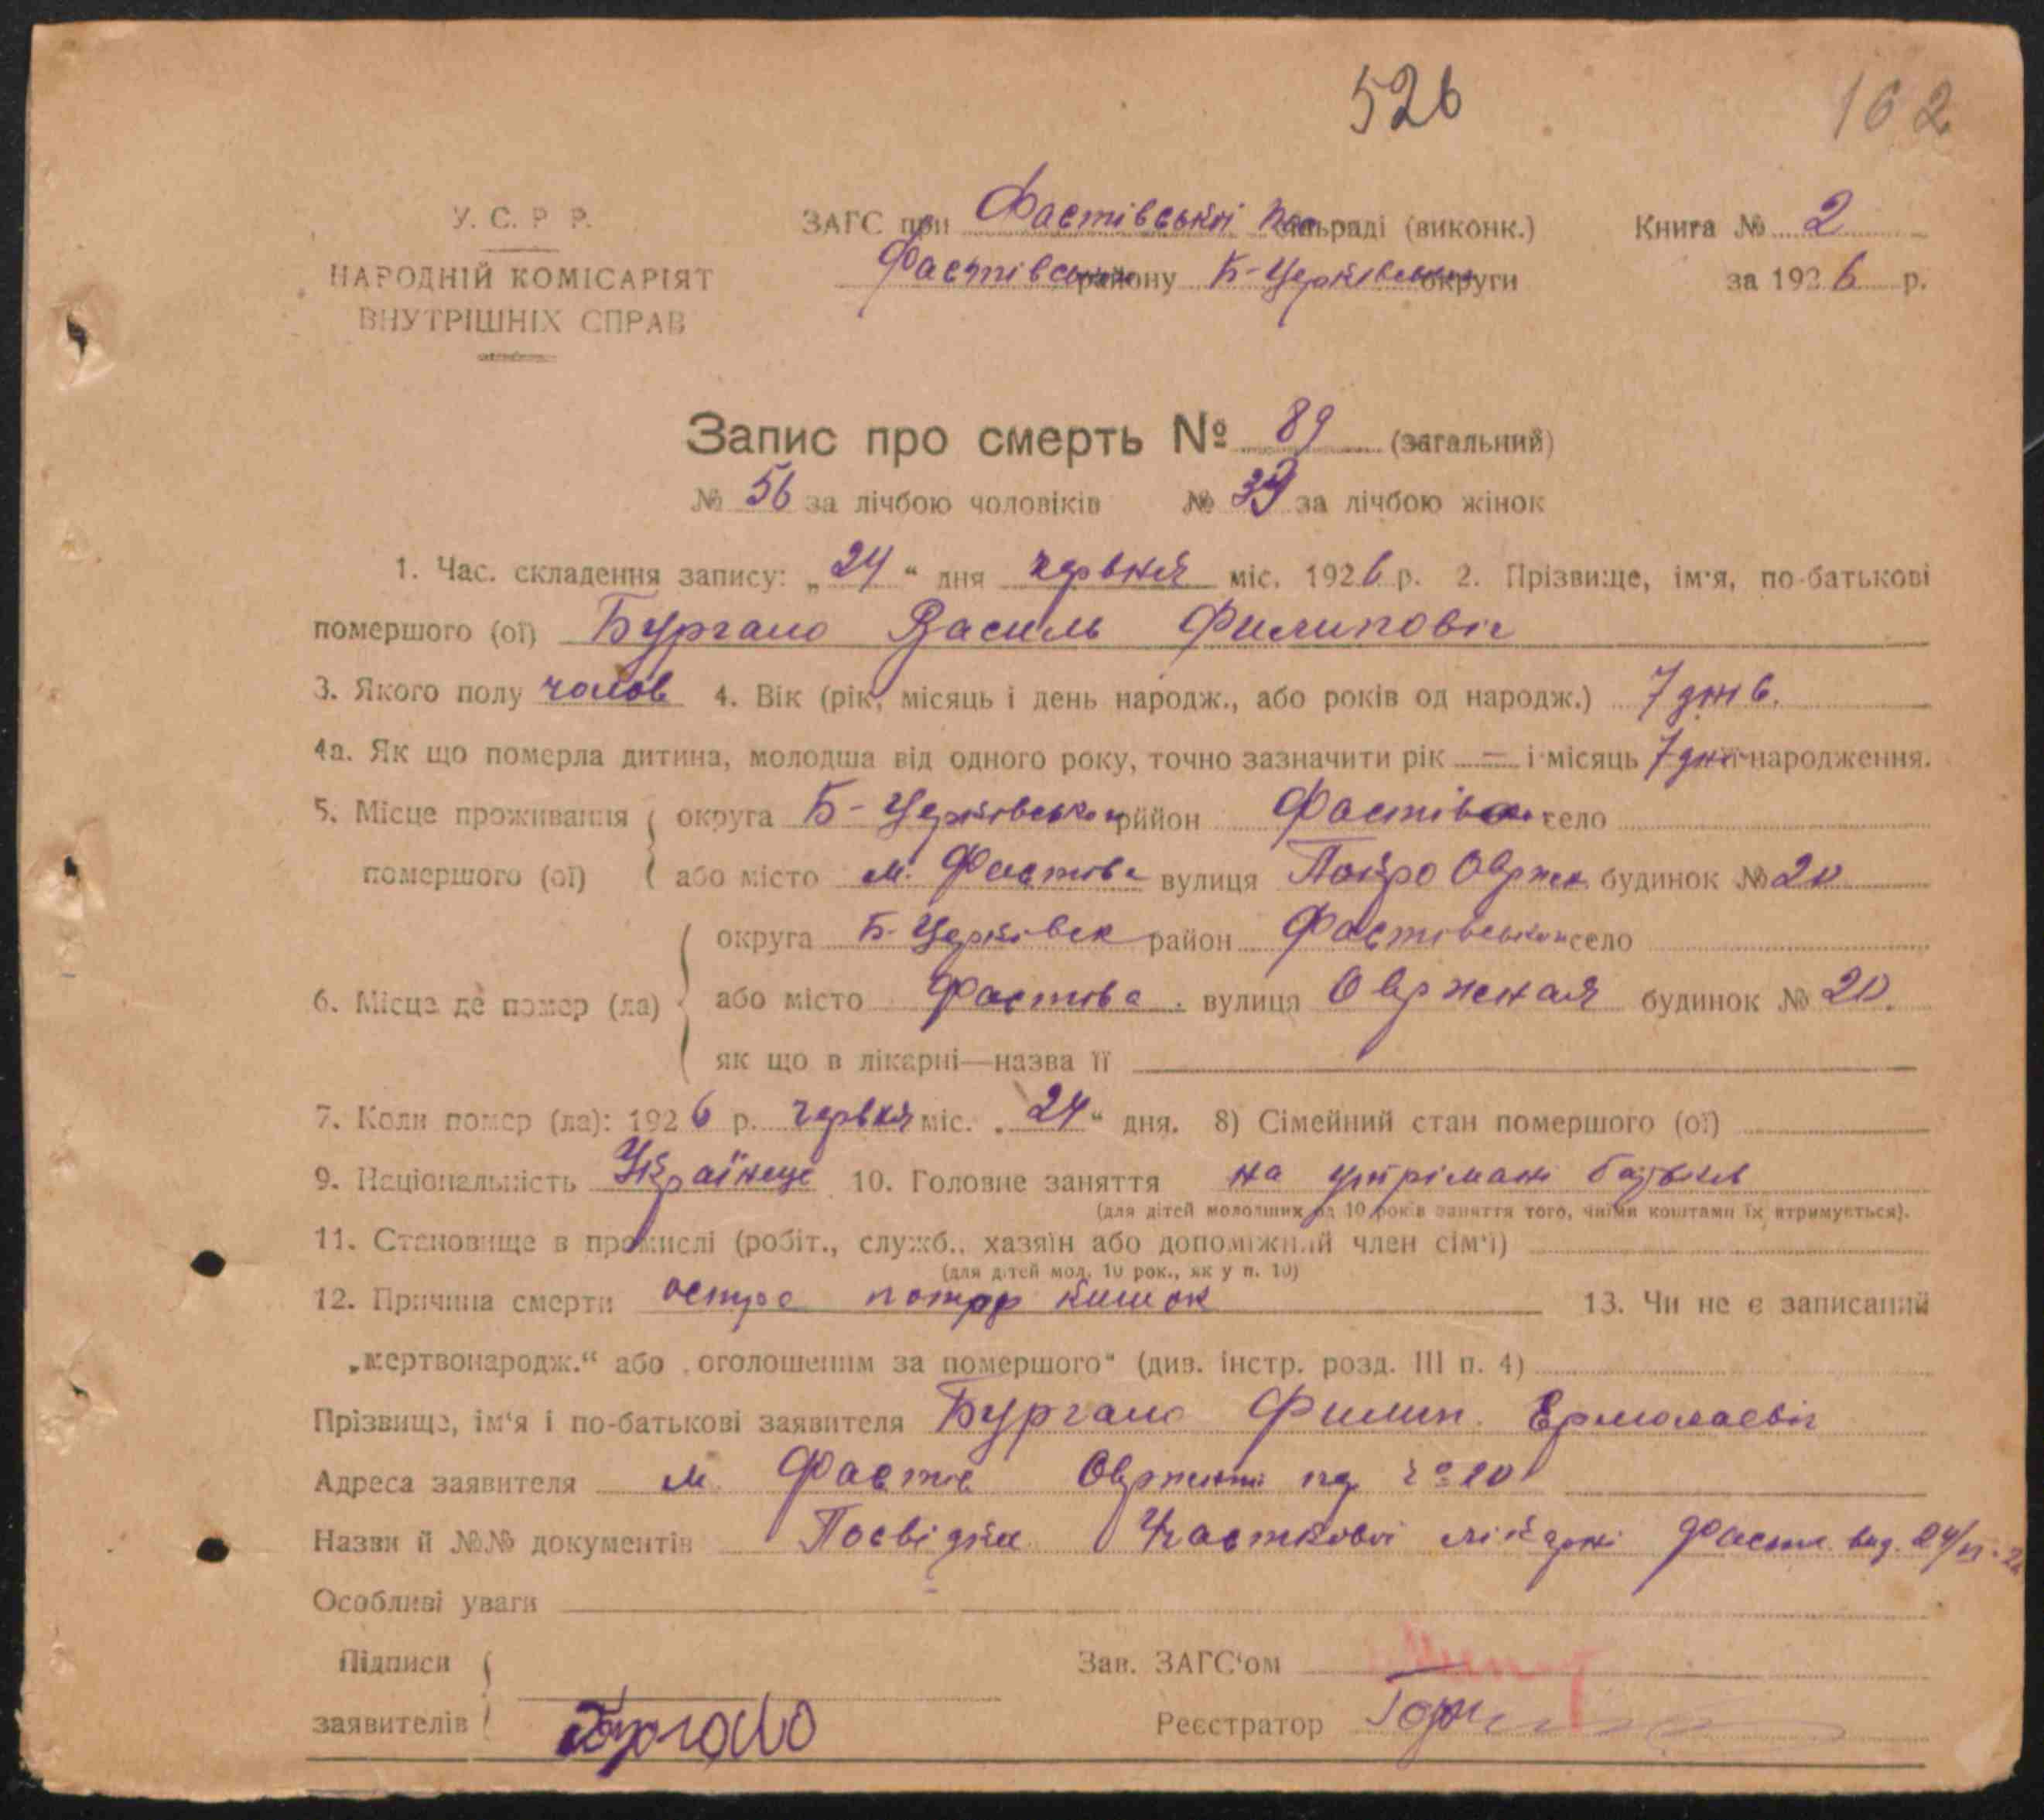 526
162
У. С. Р. Р.
НАРОДНІЙ КОМІСАРІЯТ
ВНУТРІШНІХ СПРАВ
ЗАГС при Фастівській раді (виконк.)
Фастівськ району Б-Церківськ округи
Книга № 2
за 1926 р.
Запис про смерть № 89 (загальний)
№ 56 за лічбою чоловіків № 33 за лічбою жінок
1. Час. складення запису: „24“ дня червня міс. 1926 р. 2. Прізвище, ім'я, по-батькові
помершого (ої) Бургало Василь Филипович
3. Якого полу чолов 4. Вік (рік, місяць і день народж., або років од народж.) 7 днів.
4а. Як що померла дитина, молодша від одного року, точно зазначити рік — і місяць 7 дня народження.
5. Місце проживання помершого (ої) округа Б-Церківськ район Фастівськ село
або місто м. Фастов вулиця будинок № 20
6. Місце де помер (ла) округа Б-Церківськ район Фастівськ село
або місто Фастов. вулиця будинок № 20.
як що в лікарні—назва її
7. Коли помер (ла): 1926 р. червня міс. „24“ дня. 8) Сімейний стан помершого (ої)
9. Національність Українець 10. Головне заняття на утрімані батьків
(для дітей молодших од 10 років заняття того, чиїми коштами їх втримується).
11. Становище в промислі (робіт., служб., хазяїн або допоміжний член сім'ї)
(для дітей мол. 10 рок., як у п. 10)
12. Причина смерти остре кишок 13. Чи не є записаний
„мертвонародж.“ або „оголошеним за помершого“ (див. інстр. розд. III п. 4)
Прізвище, ім'я і по-батькові заявителя Бургало Филип Ермолаевич
Адреса заявителя м. Фастів № 20
Назви й №№ документів Посвідка Участкової лікарні Фаст. вид. 24/VI-26
Особливі уваги
Підписи заявителів Бургало
Зав. ЗАГС'ом
Реєстратор